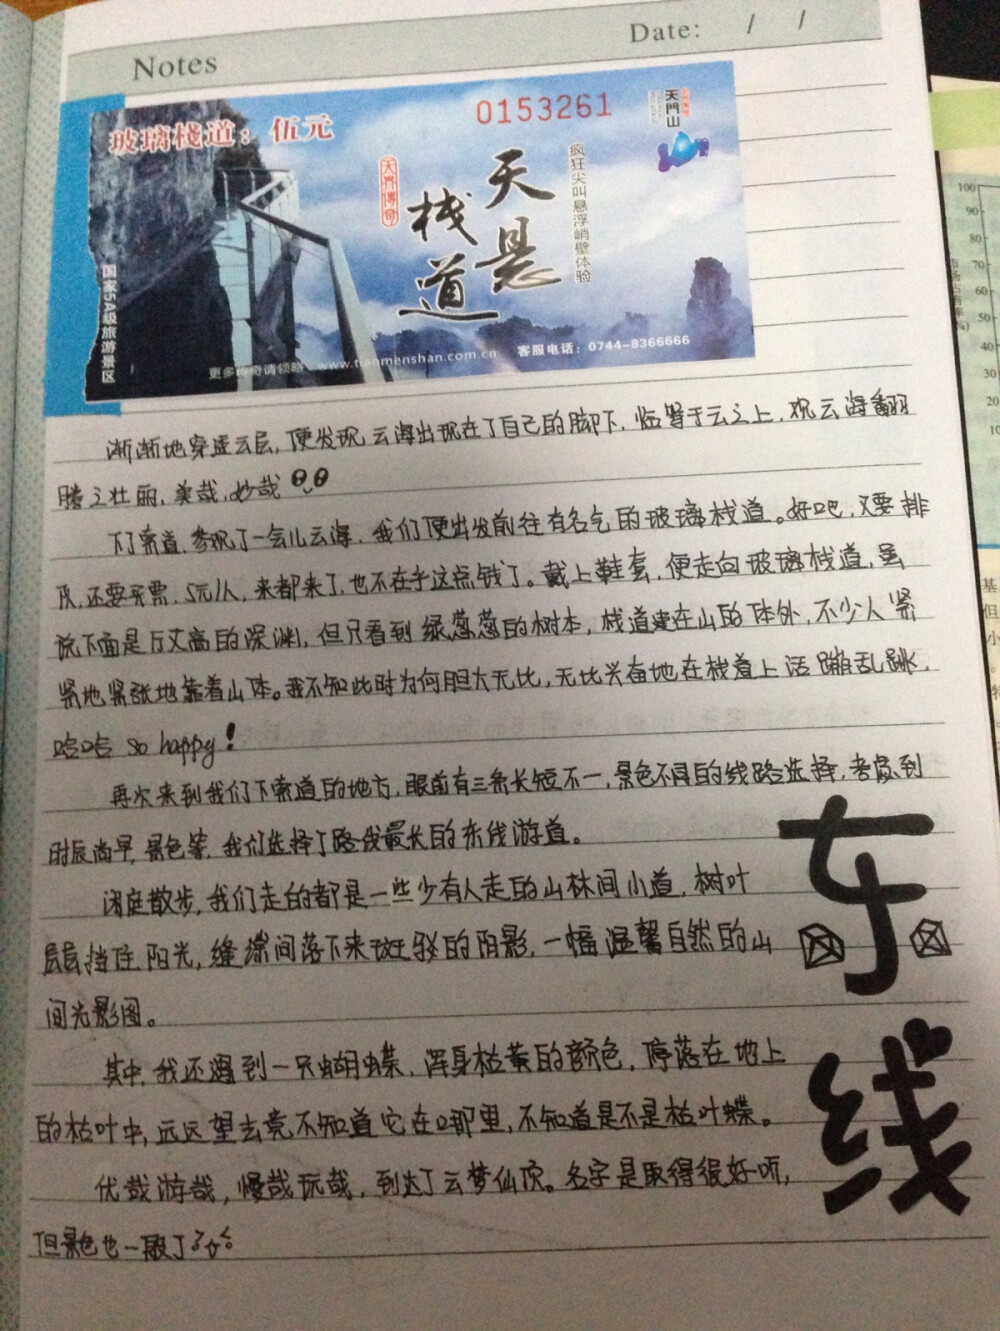 Notes
Date: / /
玻璃栈道：伍元
0153261
天門山
天界傳奇
天悬
栈道
疯狂尖叫悬浮峭壁体验
国家5A级旅游景区
更多传奇请领略 www.tianmenshan.com.cn 客服电话：0744-8366666
渐渐地穿过云层，便发现云海出现在了自己的脚下，临等于云之上，观云海翻
腾之壮丽，美哉，妙哉
下了索道，参观了一会儿云海，我们便出发前往有名气的玻璃栈道。好吧，又要排
队，还要买票，5元/人，来都来了，也不在乎这点钱了。戴上鞋套，便走向玻璃栈道，虽
说下面是万丈高的深渊，但只看到绿葱葱的树木，栈道建在山的体外，不少人紧
紧地紧张地靠着山体。我不知此时为何胆大无比，无比兴奋地在栈道上活蹦乱跳，
哈哈 so happy！
再次来到我们下索道的地方，眼前有三条长短不一，景色不同的线路选择，考虑到
时辰尚早，景色等，我们选择了路线最长的东线游道。
闲庭散步，我们走的都是一些少有人走的山林间小道，树叶
层层挡住阳光，缝隙间落下来斑驳的阴影，一幅温馨自然的山
间光影图。
其中，我还遇到一只蝴蝶，浑身枯黄的颜色，停落在地上
的枯叶中，远远望去竟不知道它在哪里，不知道是不是枯叶蝶。
优哉游哉，慢哉玩哉，到达了云梦仙顶。名字是取得很好听，
但景色也一般了
东
线
100
90
80
70
60
50
40
30
20
10
基
但
小